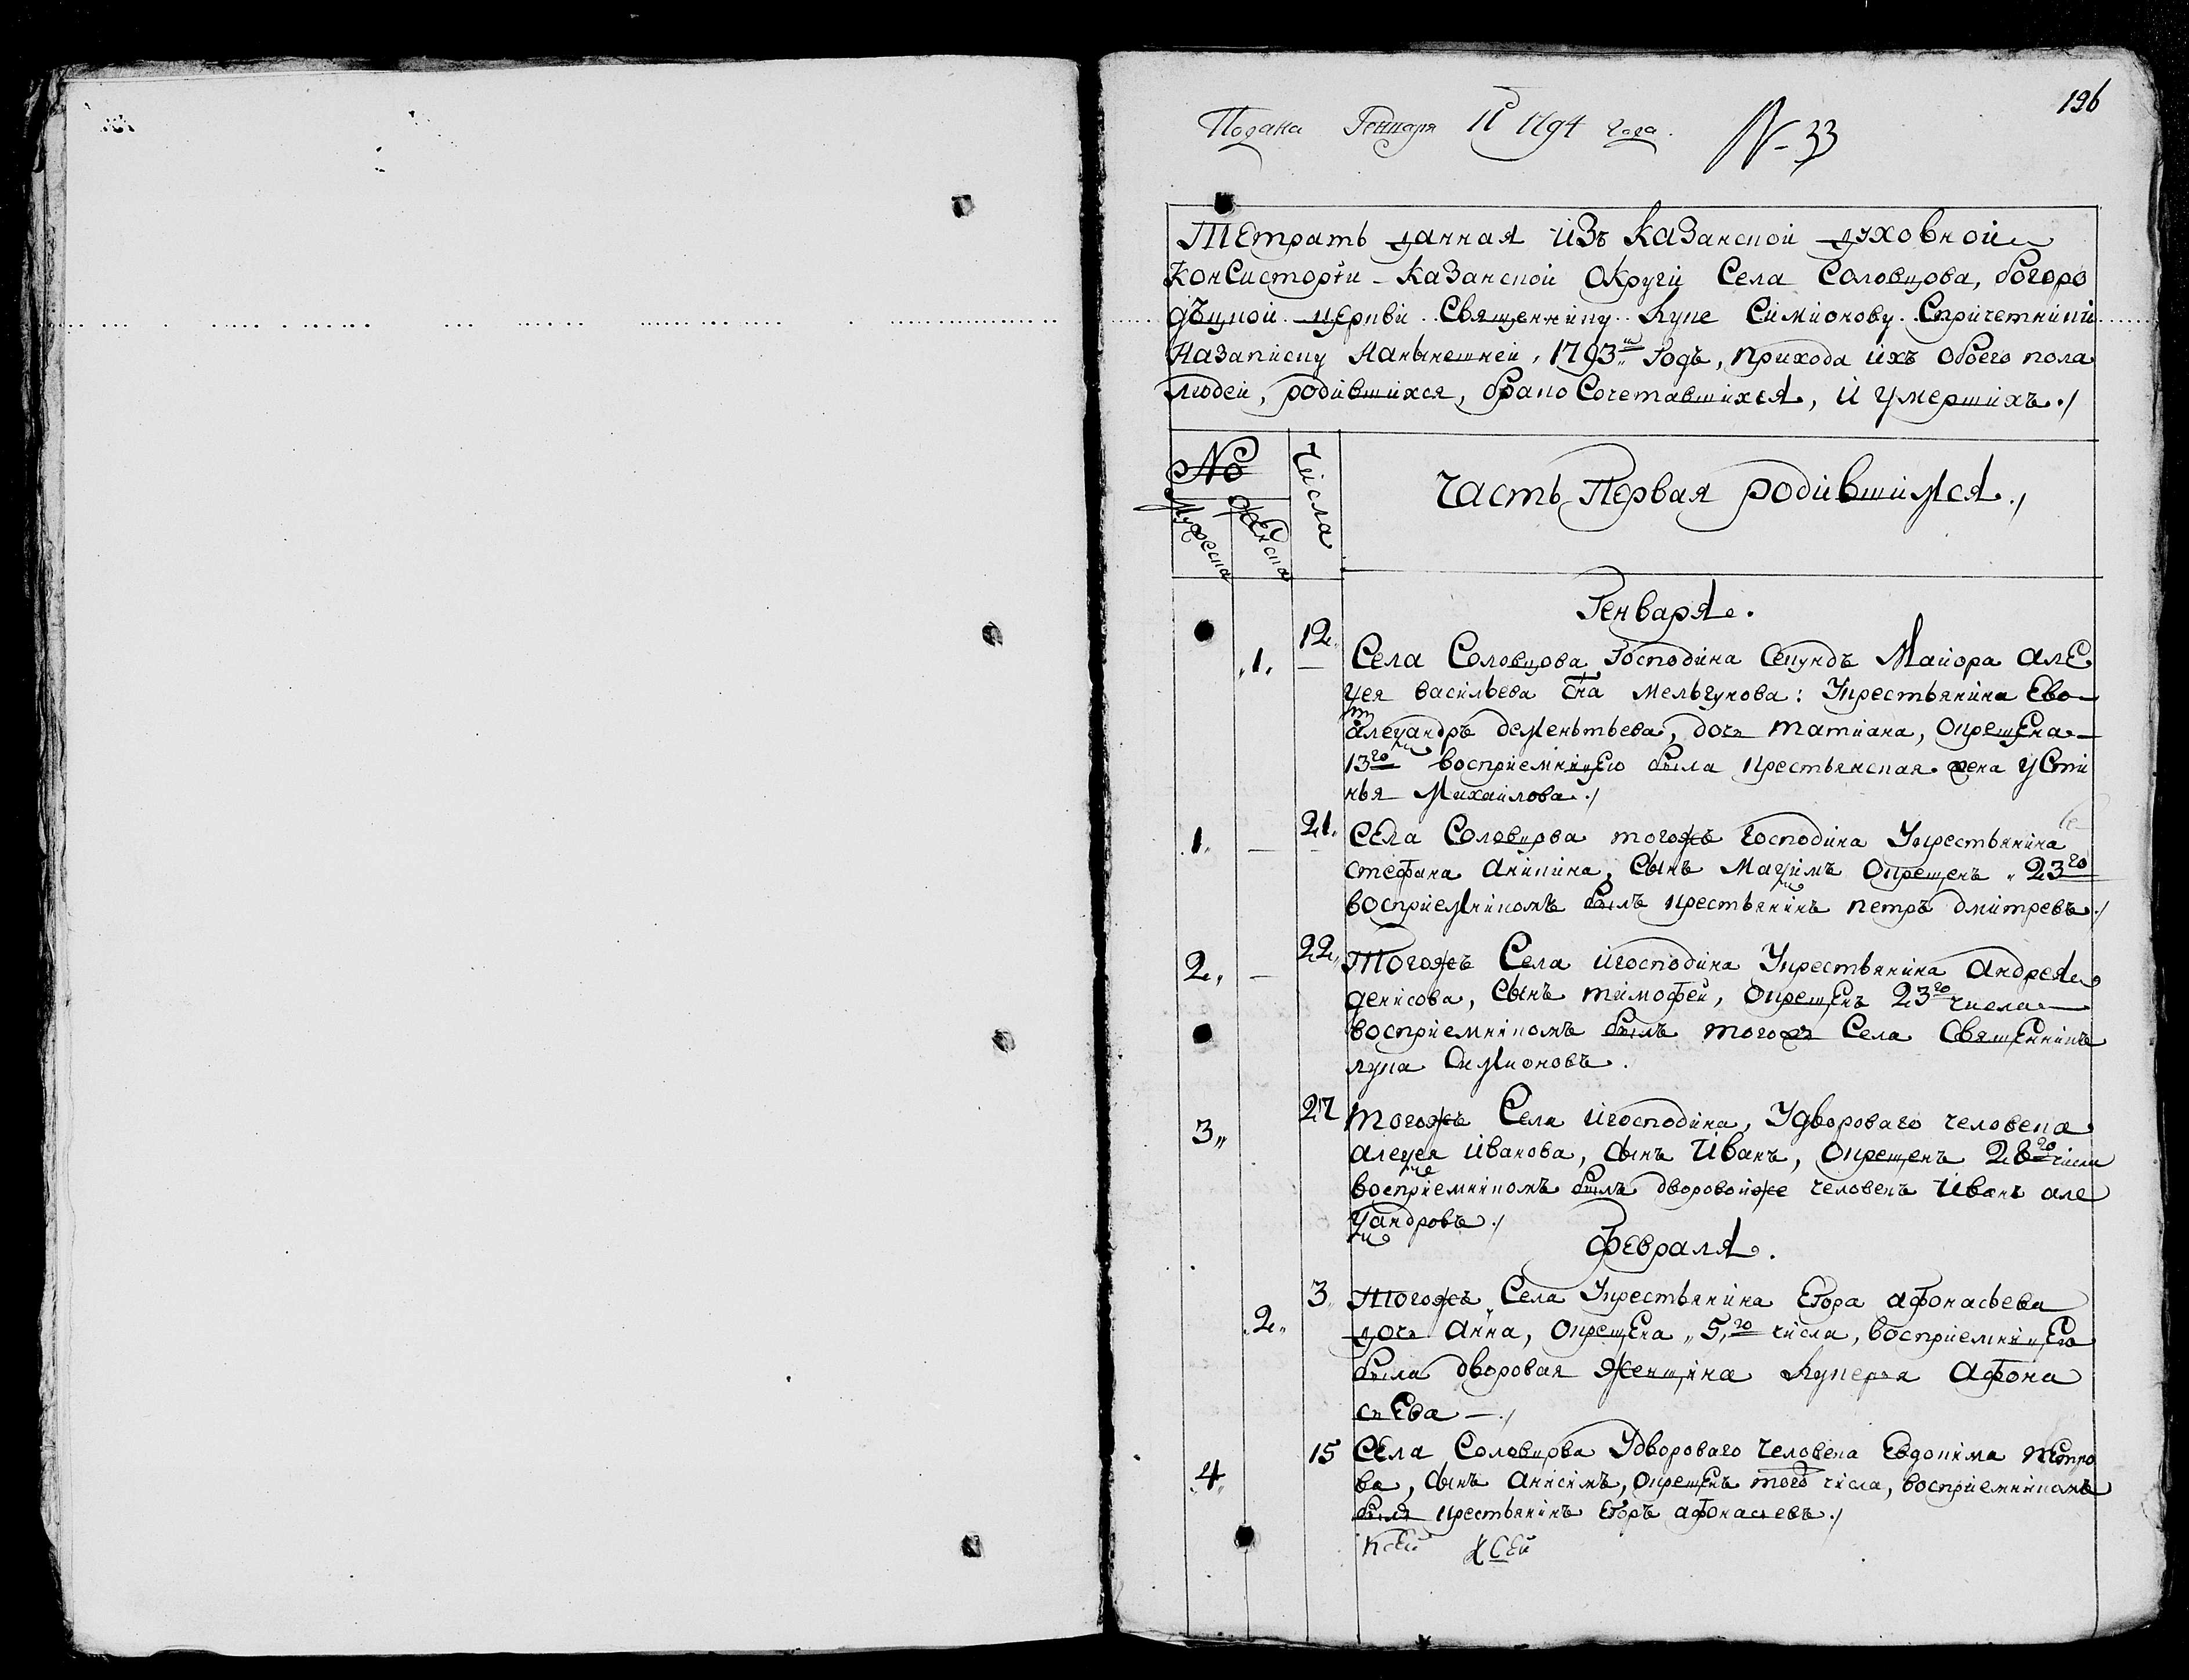 196
Подана Генваря 11 1794 года. № 33
Тетрать данная изъ Казанской духовной
Консисторіи Казанской округи Села Соловцова, богоро
дъцкой церкви Священнику Луке Симионову Спричетники
Назаписку Нанынешней, 1793й Годъ, прихода ихъ обоего пола
людей, родившихся, бракоСочетавшихся, и умершихъ ./
№
Мужеска
Женска
Числа
Часть Первая родившимся ./
Генваря.
1. 12. Села Соловцова Господина Секундъ Маиора але
Ѯея васильева сна мельгунова: Укрестьянина Ево
алеѯандръ дементьева, дочь татиана, окрещена
13го восприемницею была крестьянская жена устi
нья Михаилова ./
1. — 21. Села Соловцова тогожъ господина Укрестьянина
стефана аникина, сынъ Маѯимъ окрещенъ 23го
восприемникомъ былъ крестьянинъ петръ дмитревъ ./
2. — 22. Тогожъ Села игосподина Укрестьянина андрея
денисова, сынъ тимофеи, окрещенъ 23го числа
восприемникомъ былъ тогожъ Села Священникъ
лука Симионовъ.
3. 27 тогожъ Села игосподина, Удвороваго человека
алеѯея иванова, сынъ иванъ, окрещенъ 28го числа
восприемникомъ былъ дворовойже человекъ иванъ але
ѯандровъ ./
Февраля.
2. 3. Тогожъ Села Укрестьянина Егора афонасьева
дочь анна, окрещена 5,го числа, восприемницею
была дворовая женщина Лукерья афона
сьева — ./
4. 15 Села Соловцова Удвороваго человека Евдокима петро
ва, сынъ анисимъ, окрещенъ того числа, восприемникомъ
былъ крестьянинъ егоръ афонасьевъ ./
ксей